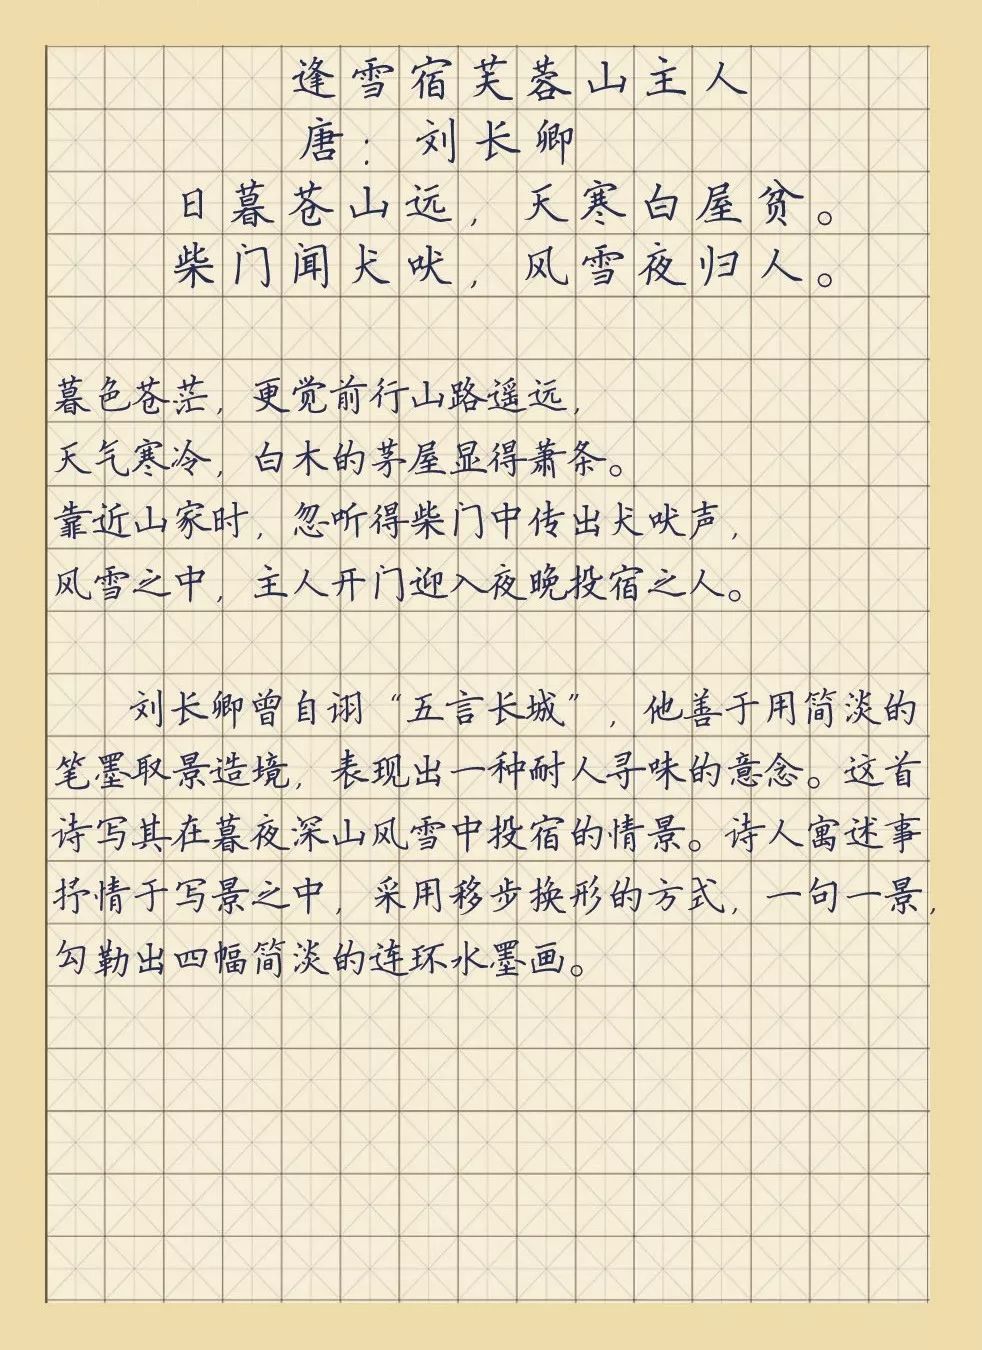 逢雪宿芙蓉山主人
唐：刘长卿
日暮苍山远，天寒白屋贫。
柴门闻犬吠，风雪夜归人。
暮色苍茫，更觉前行山路遥远，
天气寒冷，白木的茅屋显得萧条。
靠近山家时，忽听得柴门中传出犬吠声，
风雪之中，主人开门迎入夜晚投宿之人。
刘长卿曾自诩“五言长城”，他善于用简淡的
笔墨取景造境，表现出一种耐人寻味的意念。这首
诗写其在暮夜深山风雪中投宿的情景。诗人寓述事
抒情于写景之中，采用移步换形的方式，一句一景，
勾勒出四幅简淡的连环水墨画。